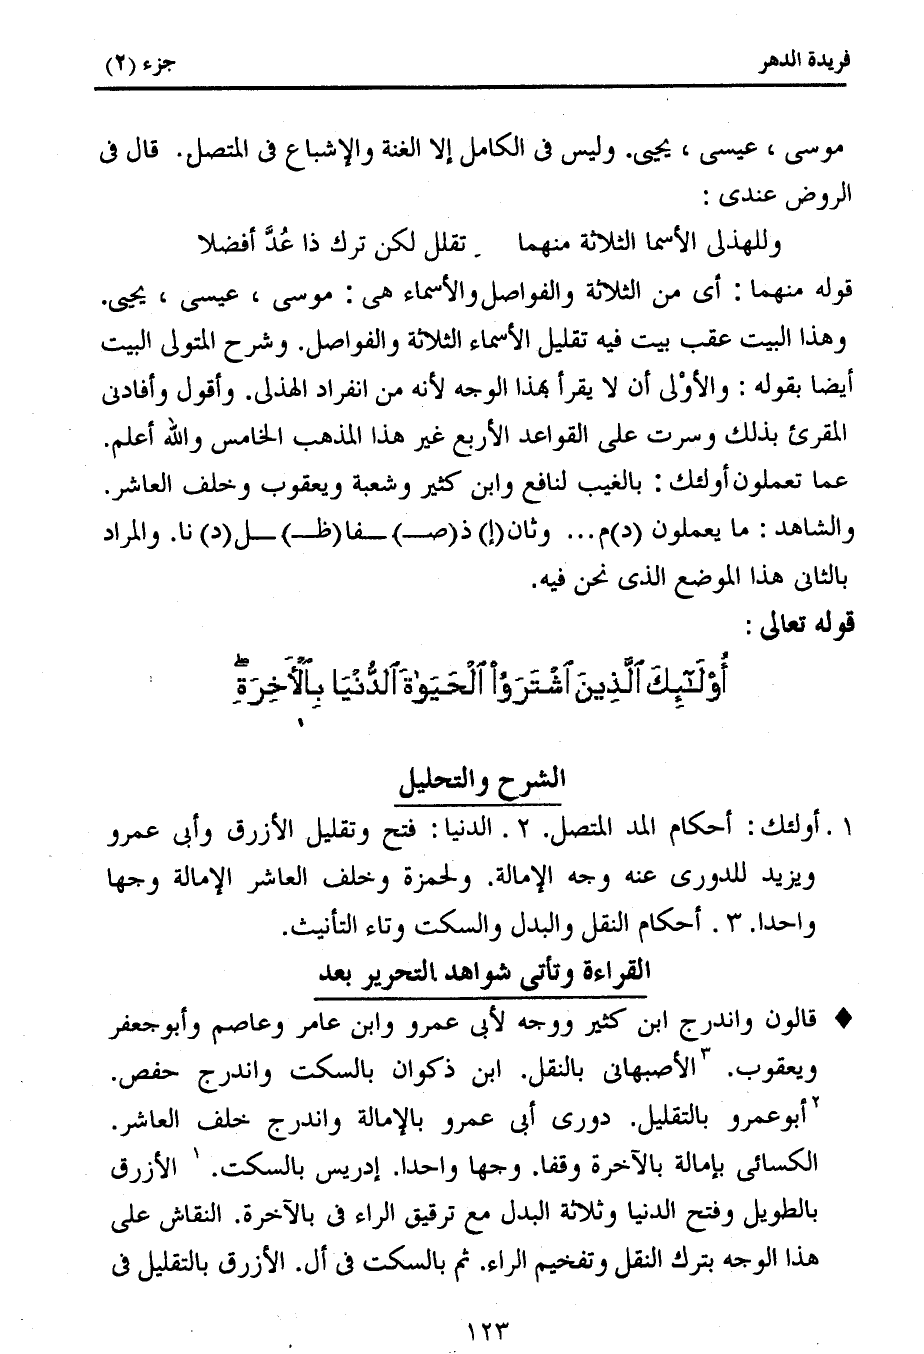 فريدة الدهر جزء (٢)
موسى ، عيسى ، يحيى. وليس فى الكامل إلا الغنة والإشباع فى المتصل. قال فى
الروض عندى :
وللهذلى الأسما الثلاثة منهما تقلل لكن ترك ذا عُدَّ أفضلا
قوله منهما : أى من الثلاثة والفواصل والأسماء هى : موسى ، عيسى ، يحيى.
وهذا البيت عقب بيت فيه تقليل الأسماء الثلاثة والفواصل. وشرح المتولى البيت
أيضا بقوله : والأوْلى أن لا يقرأ بهذا الوجه لأنه من انفراد الهذلى. وأقول وأفادنى
المقرئ بذلك وسرت على القواعد الأربع غير هذا المذهب الخامس والله أعلم.
عما تعملون أولئك : بالغيب لنافع وابن كثير وشعبة ويعقوب وخلف العاشر.
والشاهد : ما يعملون (د)م... وثان(إ) ذ(صـ)ـفا(ظـ)ـل(د) نا. والمراد
بالثانى هذا الموضع الذى نحن فيه.
قوله تعالى :
أُوْلَـٰٓئِكَ ٱلَّذِينَ ٱشْتَرَوُاْ ٱلْحَيَوٰةَ ٱلدُّنْيَا بِٱلْأَخِرَةِۖ
الشرح والتحليل
١ . أولئك : أحكام المد المتصل. ٢ . الدنيا : فتح وتقليل الأزرق وأبى عمرو
ويزيد للدورى عنه وجه الإمالة. ولحمزة وخلف العاشر الإمالة وجها
واحدا. ٣ . أحكام النقل والبدل والسكت وتاء التأنيث.
القراءة وتأتى شواهد التحرير بعد
♦ قالون واندرج ابن كثير ووجه لأبى عمرو وابن عامر وعاصم وأبوجعفر
ويعقوب. ٣ الأصبهانى بالنقل. ابن ذكوان بالسكت واندرج حفص.
٢ أبوعمرو بالتقليل. دورى أبى عمرو بالإمالة واندرج خلف العاشر.
الكسائى بإمالة بالآخرة وقفا. وجها واحدا. إدريس بالسكت. ١ الأزرق
بالطويل وفتح الدنيا وثلاثة البدل مع ترقيق الراء فى بالآخرة. النقاش على
هذا الوجه بترك النقل وتفخيم الراء. ثم بالسكت فى أل. الأزرق بالتقليل فى
١٢٣